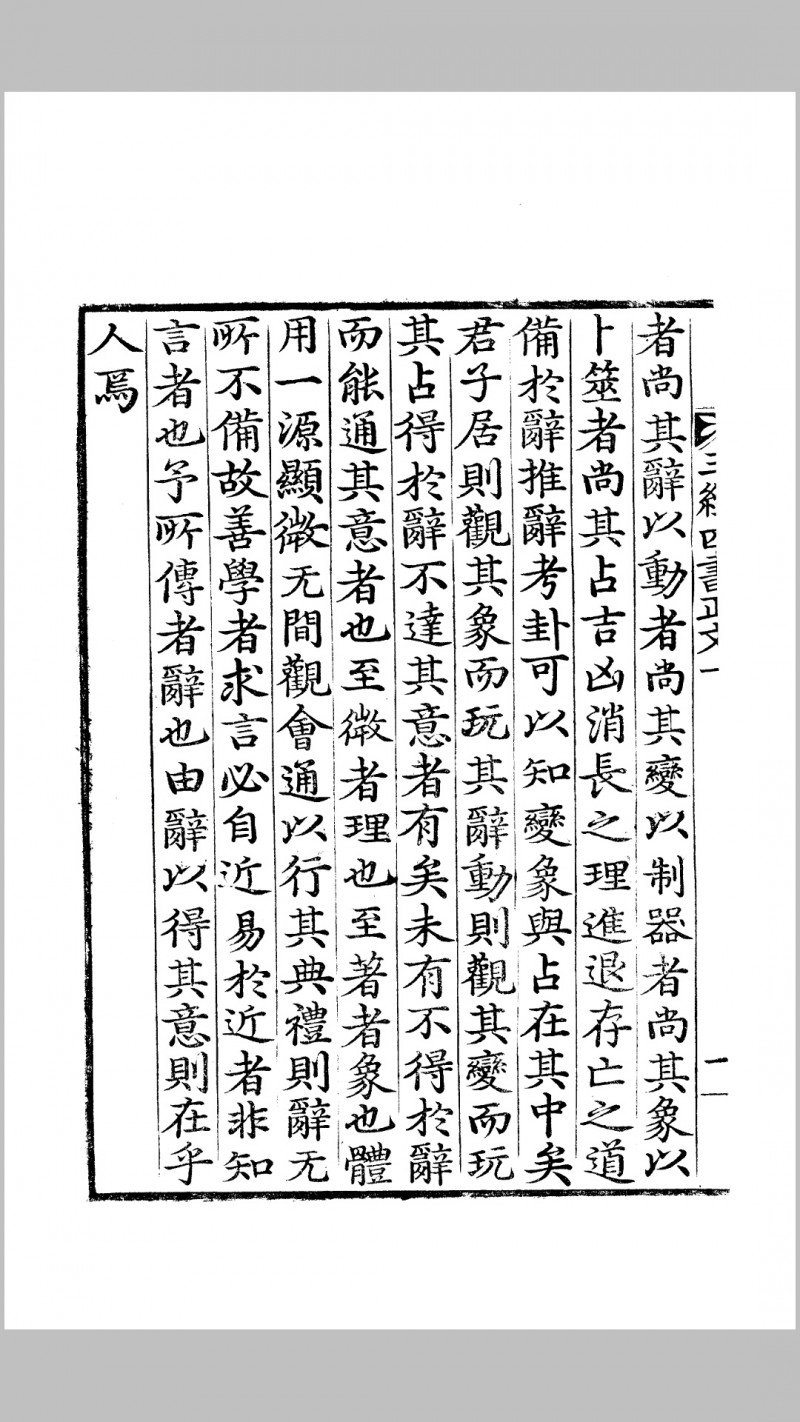 三經四書正文一
一
者尚其辭以動者尚其變以制器者尚其象以
卜筮者尚其占吉凶消長之理進退存亡之道
備於辭推辭考卦可以知變象與占在其中矣
君子居則觀其象而玩其辭動則觀其變而玩
其占得於辭不達其意者有矣未有不得於辭
而能通其意者也至微者理也至著者象也體
用一源顯微无間觀會通以行其典禮則辭无
所不備故善學者求言必自近易於近者非知
言者也予所傳者辭也由辭以得其意則在乎
人焉